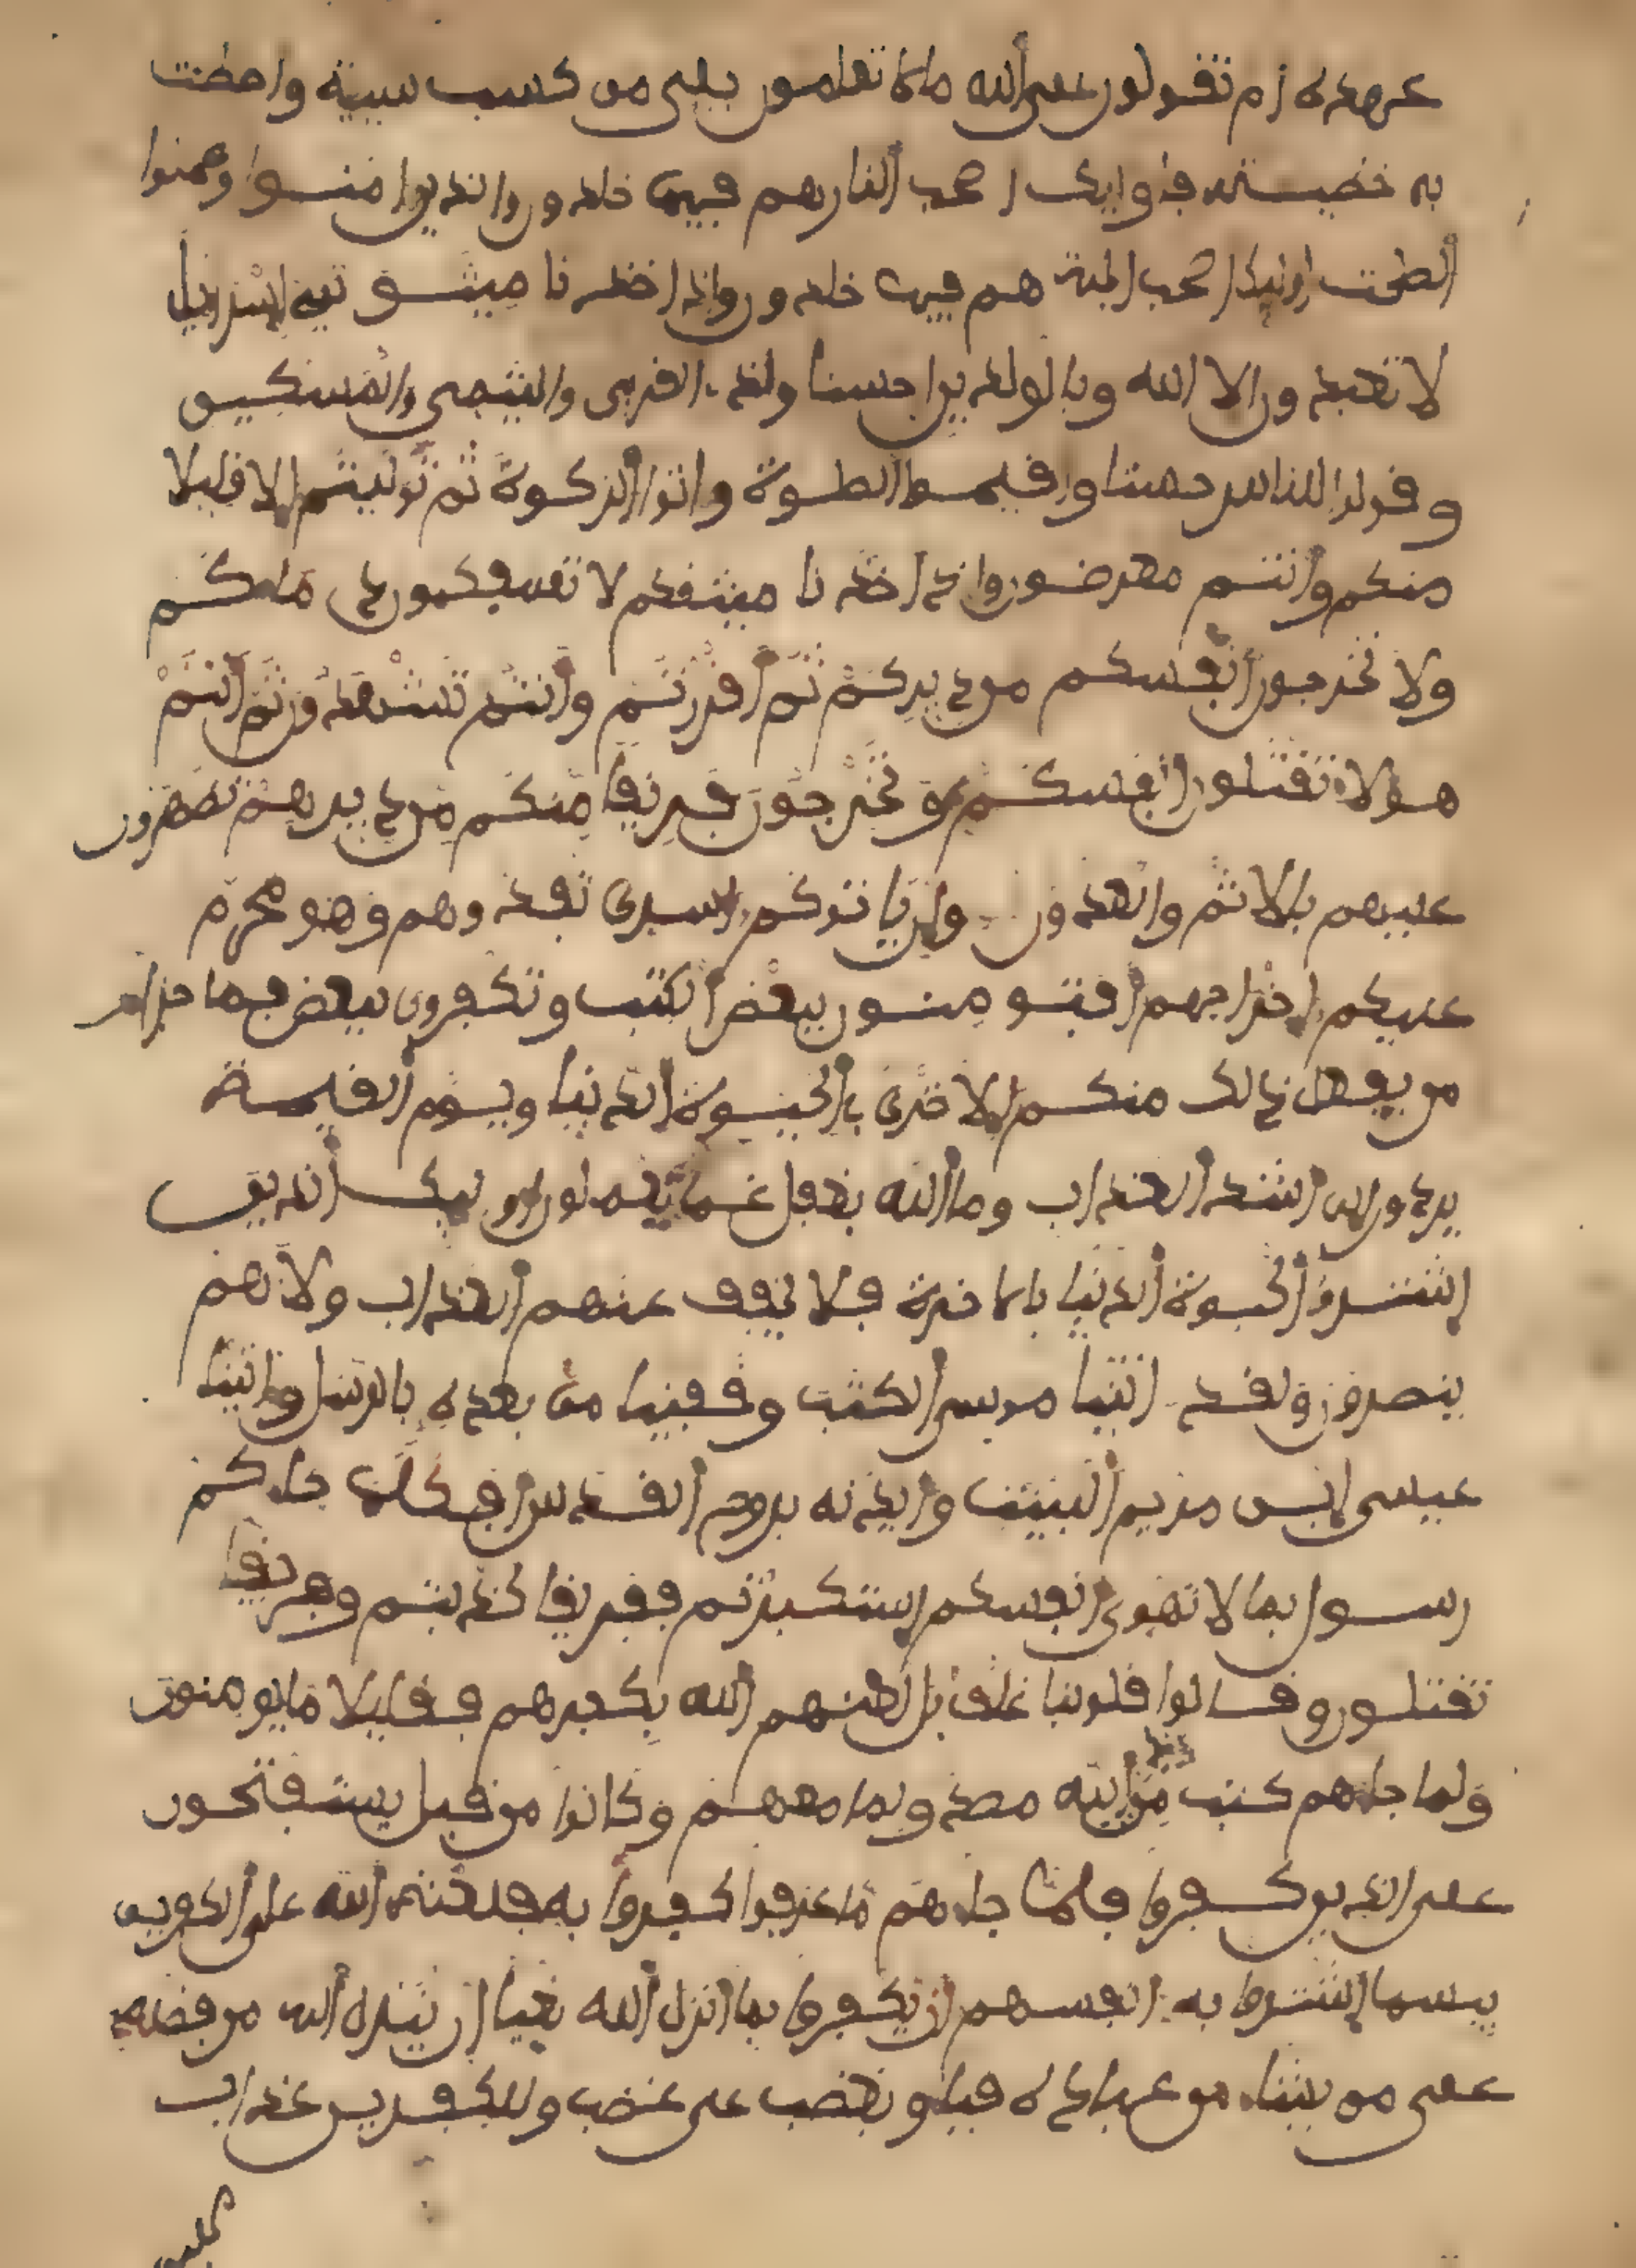 عهده ام تقولون على الله ما لا تعلمون بلى من كسب سيية واحطت
به خطيـته فاوليك اصحب النار هم فيها خلدون والذين امنوا وعملوا
الصلحت اوليك اصحب الجنة هم فيها خلدون واذ اخذنا ميثق بني اسرايل
لا تعبدون الا الله وبالولدين احسنا وذي القربى واليتمى والمسكين
وقولوا للناس حسنا واقيموا الصلوة واتوا الزكوة ثم توليتم الا قليلا
منكم وانتم معرضون واذ اخذنا ميثقكم لا تسفكون دماكم
ولا تخرجون انفسكم من ديركم ثم اقررتم وانتم تشهدون ثم انتم
هولاء تقتلون انفسكم وتخرجون فريقا منكم من ديرهم تظهرون
عليهم بالاثم والعدون وان ياتوكم اسرى تفدوهم وهو محرم
عليكم اخراجهم افتومنون ببعض الكتب وتكفرون ببعض فما جزاء
من يفعل ذلك منكم الا خزي في الحيوة الدنيا ويوم القيمة
يردون الى اشد العذاب وما الله بغفل عما يعملون اوليك الذين
اشتروا الحيوة الدنيا بالاخرة فلا يخفف عنهم العذاب ولا هم
ينصرون ولقد اتينا موسى الكتب وقفينا من بعده بالرسل واتينا
عيسى ابن مريم البينت وايدنه بروح القدس افكلما جاءكم
رسول بما لا تهوى انفسكم استكبرتم ففريقا كذبتم وفريقا
تقتلون وقالوا قلوبنا غلف بل لعنهم الله بكفرهم فقليلا ما يومنون
ولما جاءهم كتب من عند الله مصدق لما معهم وكانوا من قبل يستفتحون
على الذين كفروا فلما جاءهم ما عرفوا كفروا به فلعنة الله على الكفرين
بيسما اشتروا به انفسهم ان يكفروا بما انزل الله بغيا ان ينزل الله من فضله
على من يشاء من عباده فباو بغضب على غضب وللكفرين عذاب